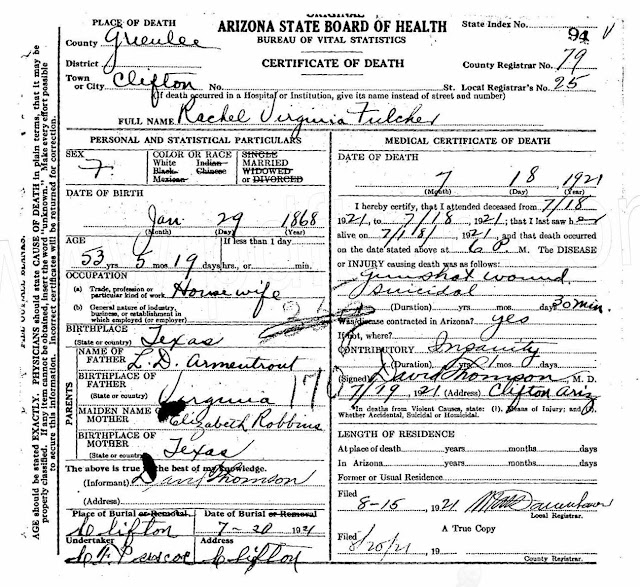 ORIGINAL
ARIZONA STATE BOARD OF HEALTH
BUREAU OF VITAL STATISTICS
CERTIFICATE OF DEATH
State Index No. 94
County Registrar No. 79
St. Local Registrar's No. 25
PLACE OF DEATH
County Greenlee
District
Town or City Clifton No.
(If death occurred in a Hospital or Institution, give its name instead of street and number)
FULL NAME Rachel Virginia Fulcher
PERSONAL AND STATISTICAL PARTICULARS
SEX F
COLOR OR RACE
White Indian
Black Chinese
Mexican
SINGLE
MARRIED
WIDOWED
or DIVORCED
DATE OF BIRTH
Jan 29 1868
(Month) (Day) (Year)
AGE If less than 1 day
53 yrs 5 mos 19 days hrs., or min.
OCCUPATION
(a) Trade, profession or particular kind of work Housewife
(b) General nature of industry, business, or establishment in which employed (or employer)
BIRTHPLACE
(State or country) Texas
PARENTS
NAME OF FATHER L. D. Armentrout
BIRTHPLACE OF FATHER
(State or country) Virginia
MAIDEN NAME OF MOTHER Elizabeth Robbins
BIRTHPLACE OF MOTHER
(State or country) Texas
The above is true to the best of my knowledge.
(Informant)
(Address)
Place of Burial or Removal Date of Burial or Removal
Clifton 7-20 1921
Undertaker
Clifton
MEDICAL CERTIFICATE OF DEATH
DATE OF DEATH
7 18 1921
(Month) (Day) (Year)
I hereby certify, that I attended deceased from 7/18
1921, to 7/18 1921; that I last saw her
alive on 7/18/ 1921, and that death occurred
on the date stated above at 6 P. M. The DISEASE
or INJURY causing death was as follows:
gunshot wound
suicidal
(Duration) yrs. mos. days 30 min.
Was disease contracted in Arizona? yes
If not, where?
CONTRIBUTORY Insanity
(Duration) yrs. 1 mos. days
(Signed) David Thomson, M. D.
7/19 1921 (Address) Clifton Ariz
*In deaths from Violent Causes, state: (1), Means of Injury; and (2),
Whether Accidental, Suicidal or Homicidal.
LENGTH OF RESIDENCE
At place of death years months days
In Arizona years months days
Former or Usual Residence
Filed 8-15 1921
Local Registrar.
A True Copy
Filed 8/20/21 19
County Registrar.
AGE should be stated EXACTLY. PHYSICIANS should state CAUSE OF DEATH in plain terms, that it may be
properly classified. If any item cannot be obtained, insert the word "unknown." Make every effort possible
to secure this information. Incorrect certificates will be returned for correction.